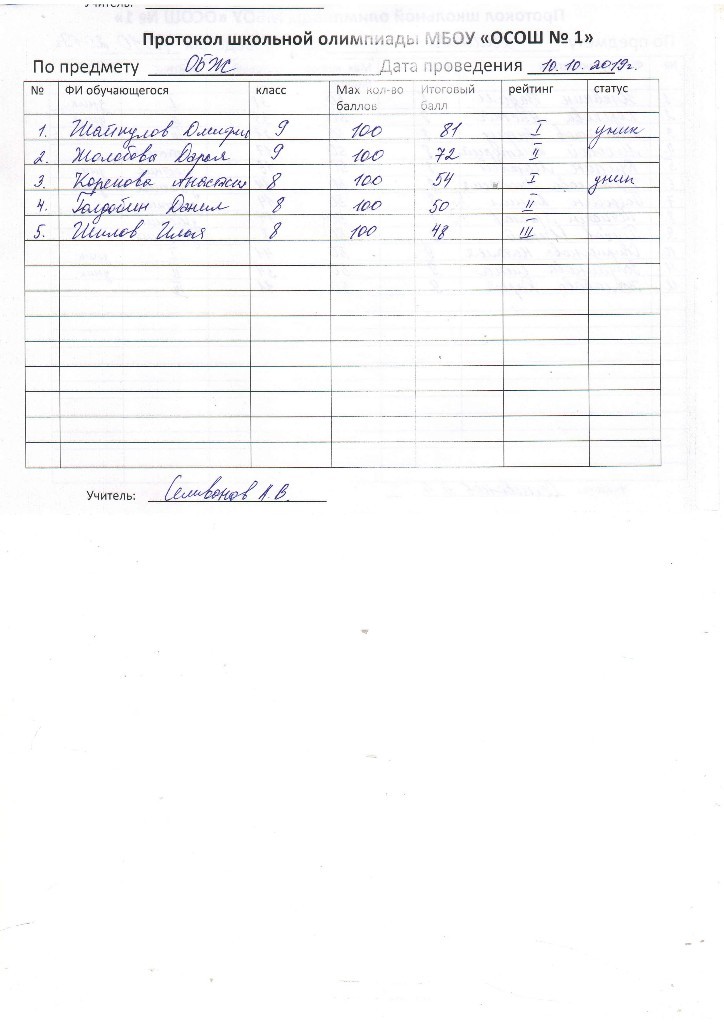 Учитель:
Протокол школьной олимпиады МБОУ «ОСОШ № 1»
По предмету ОБЖ Дата проведения 10.10.2019г.
№ ФИ обучающегося класс Мах кол-во баллов Итоговый балл рейтинг статус
1. Шайкулов Дмитрий 9 100 81 I
2. Жолобова Дарья 9 100 72 II
3. Коренова Анастасия 8 100 54 I
4. Голдобин Данил 8 100 50 II
5. Шилов Илья 8 100 48 III
Учитель: Селиванов А.В.